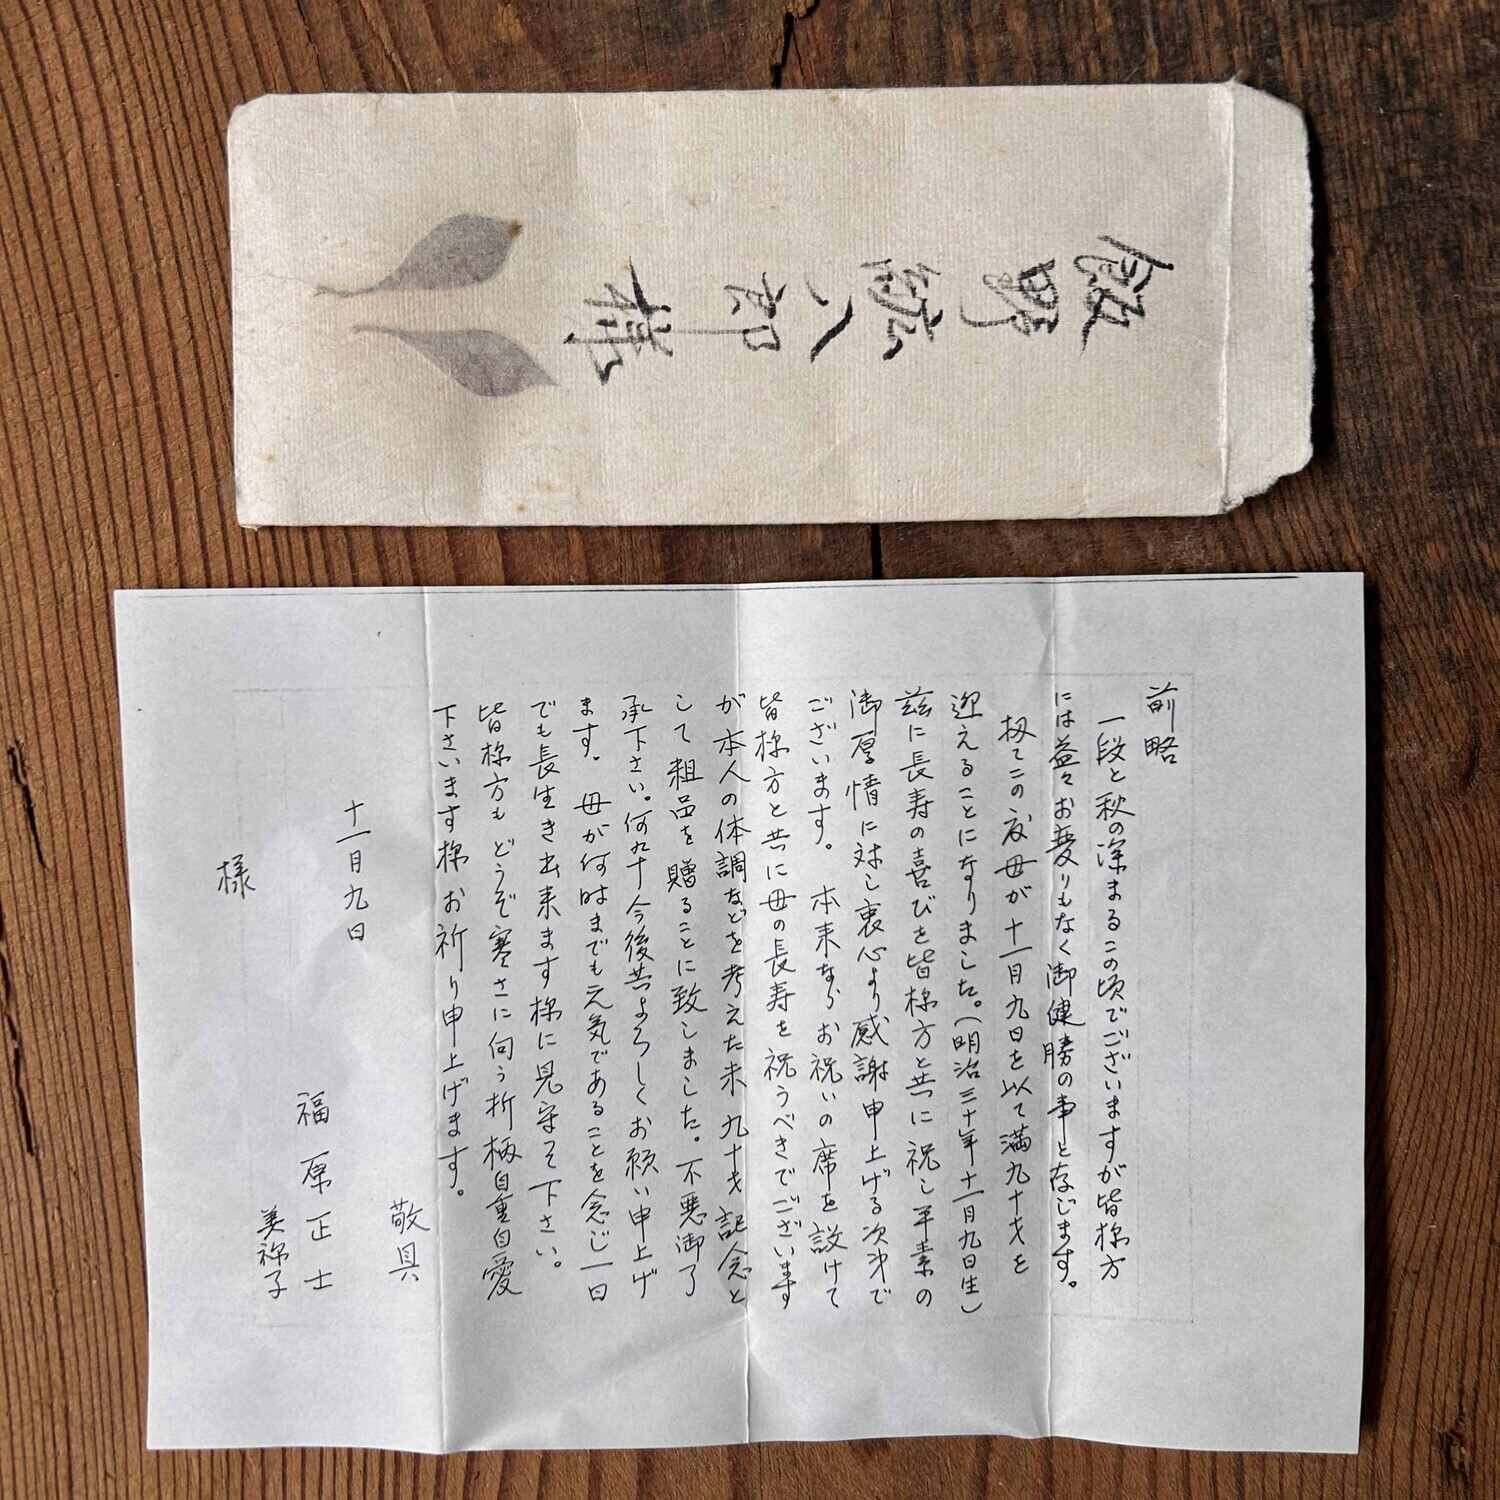 飯野紘八郎様
前略
一段と秋の深まるこの頃でございますが皆様方
には益々お変りもなく御健勝の事と存じます。
扨てこの度母が十一月九日を以て満九十才を
迎えることになりました。(明治三十年十一月九日生)
茲に長寿の喜びを皆様方と共に祝し平素の
御厚情に対し衷心より感謝申上げる次第で
ございます。本来ならお祝いの席を設けて
皆様方と共に母の長寿を祝うべきでございます
が本人の体調などを考えた末九十才記念と
して粗品を贈ることに致しました。不悪御了
承下さい。何卆今後共よろしくお願い申上げ
ます。母が何時までも元気であることを念じ一日
でも長生き出来ます様に見守って下さい。
皆様方もどうぞ寒さに向う折柄自重自愛
下さいます様お祈り申上げます。
敬具
十一月九日
福原正士
美祢子
様